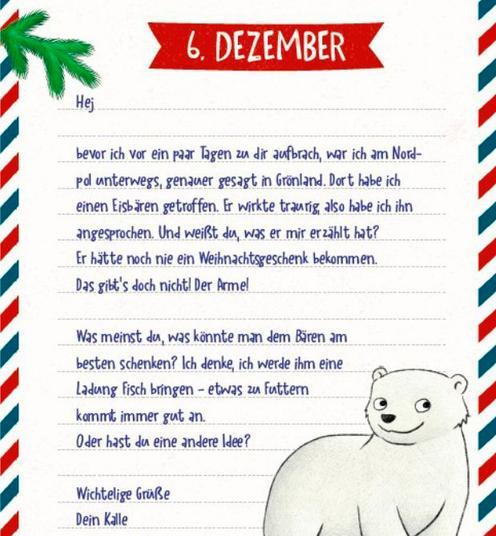 6. DEZEMBER
Hej
bevor ich vor ein paar Tagen zu dir aufbrach, war ich am Nord-
pol unterwegs, genauer gesagt in Grönland. Dort habe ich
einen Eisbären getroffen. Er wirkte traurig, also habe ich ihn
angesprochen. Und weißt du, was er mir erzählt hat?
Er hätte noch nie ein Weihnachtsgeschenk bekommen.
Das gibt's doch nicht! Der Arme!
Was meinst du, was könnte man dem Bären am
besten schenken? Ich denke, ich werde ihm eine
Ladung Fisch bringen – etwas zu Futtern
kommt immer gut an.
Oder hast du eine andere Idee?
Wichtelige Grüße
Dein Kalle